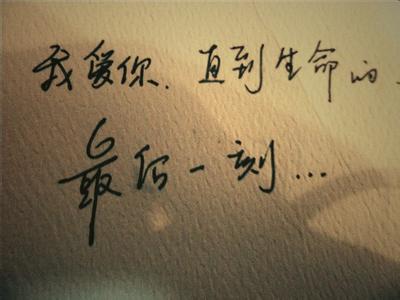 我爱你.直到生命的
最后一刻...